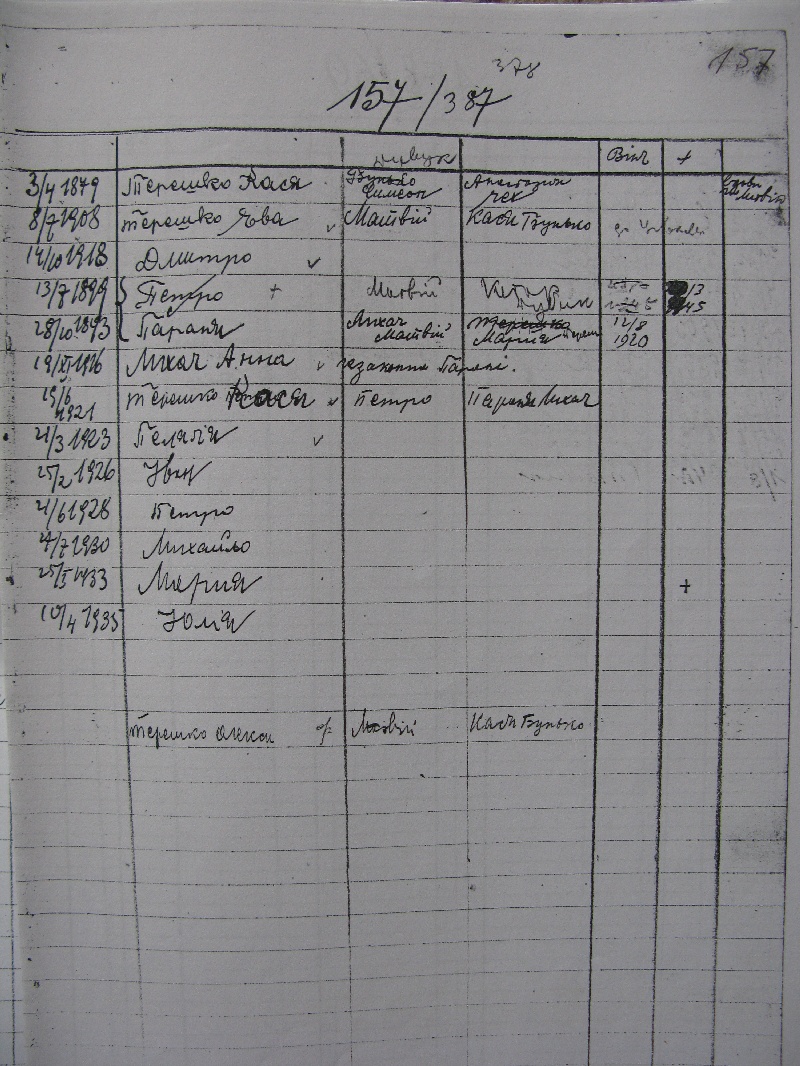 157
378
157/387
Вінч +
3/4 1879 Терешко Кася Бунько Симеон Анастазия Чех
8/7 1908 Терешко Єва Матвій Кася Бунько
14/10 1918 Дмитро
13/7 1899 Петро + Матвій
28/10 1893 Параня Лихач Матвій Терешко Мария 12/8 1920
19/XI 1916 Лихач Анна незаконна Парані.
19/6 1921 Терешко Кася Петро Параня Лихач
21/3 1923 Пелагія
25/2 1926 Іван
21/6 1928 Петро
4/7 1930 Михайло
25/I 1933 Мария +
10/4 1935 Юлія
Терешко Олекса Матвій Кася Бунько